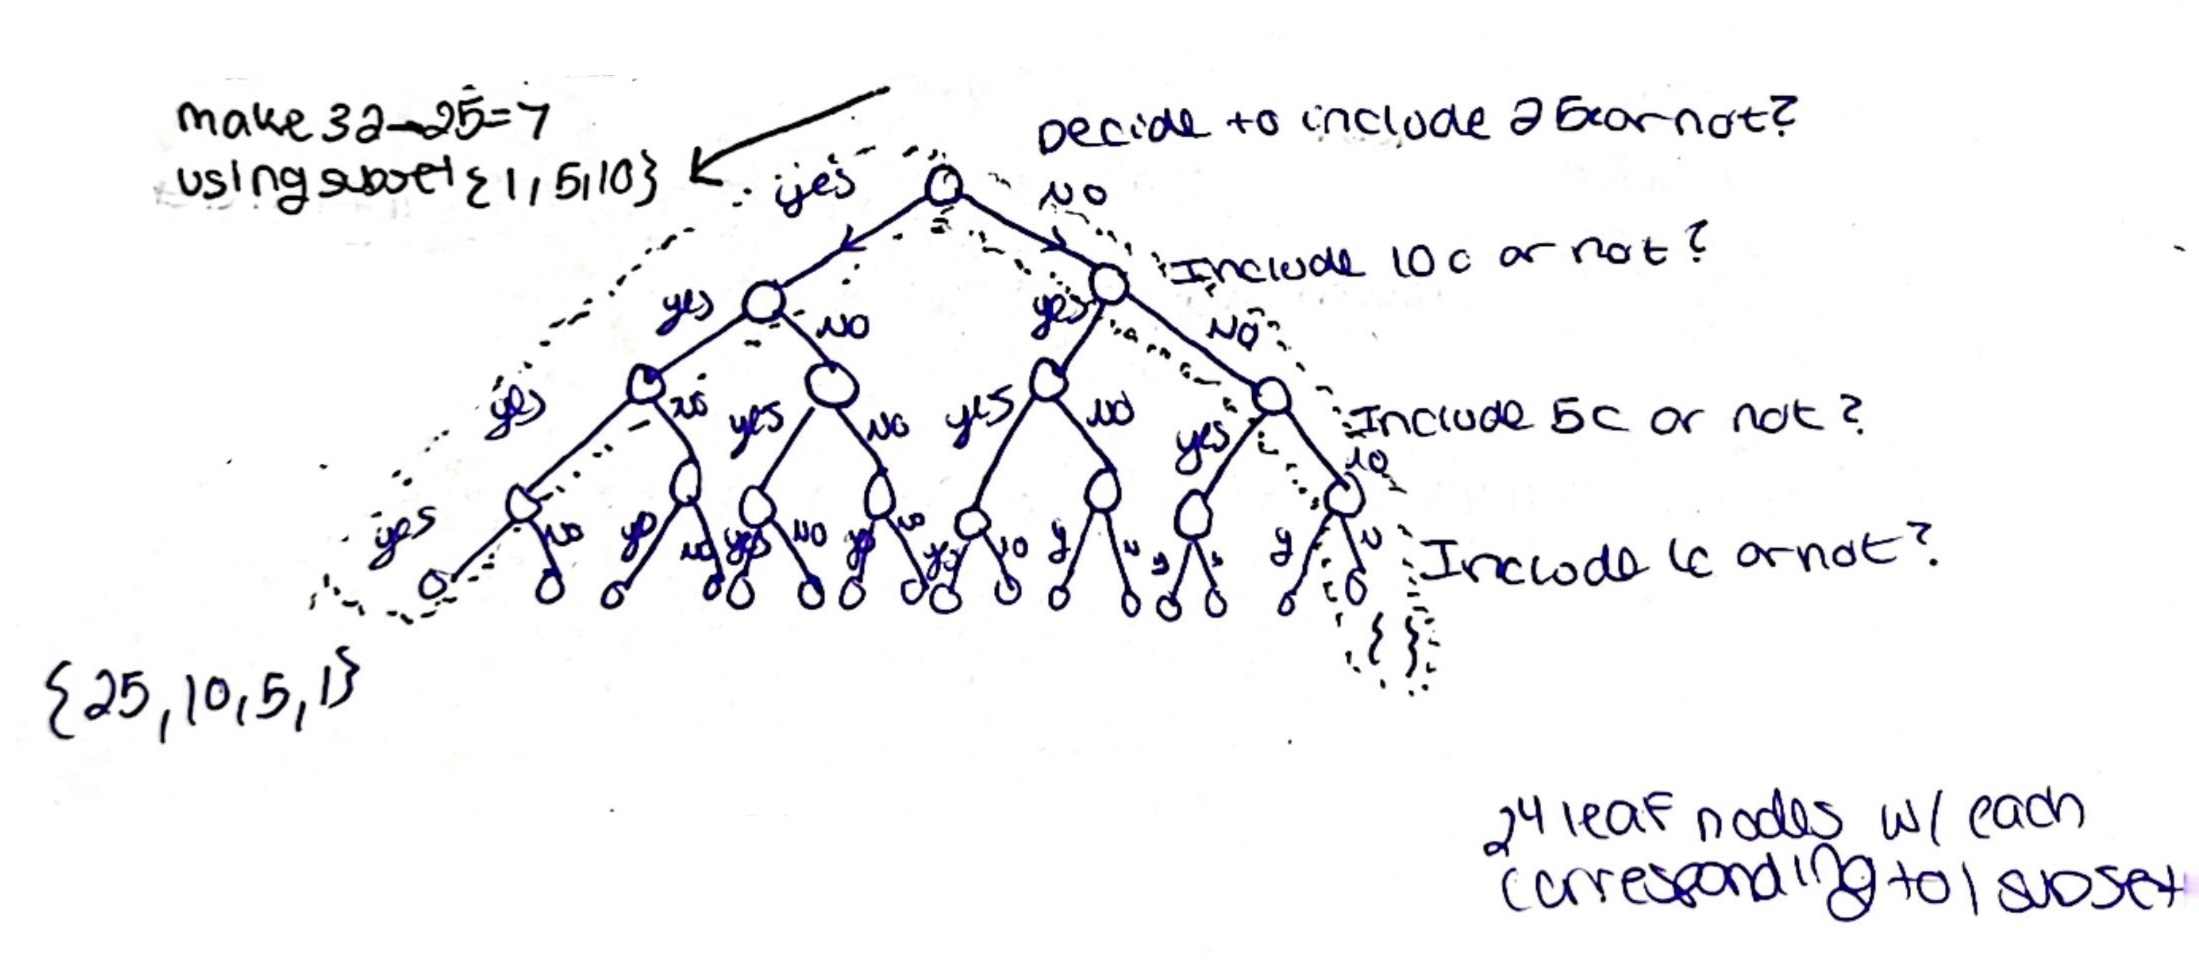 make 32-25=7
using subset {1,5,10}
Decide to include 25c or not?
yes
NO
Include 10c or not?
yes
NO
yes
NO
Include 5c or not?
yes
no
yes
NO
yes
NO
yes
NO
Include 1c or not?
yes
NO
NO
yes
NO
NO
y
N
y
y
N
{25,10,5,1}
{ }
2⁴ leaf nodes w/ each
corresponding to 1 subset